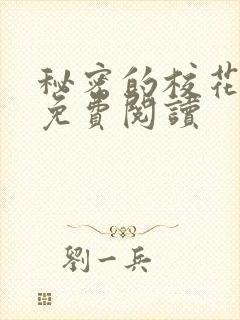 秘密的校花
免費閱讀
劉一兵